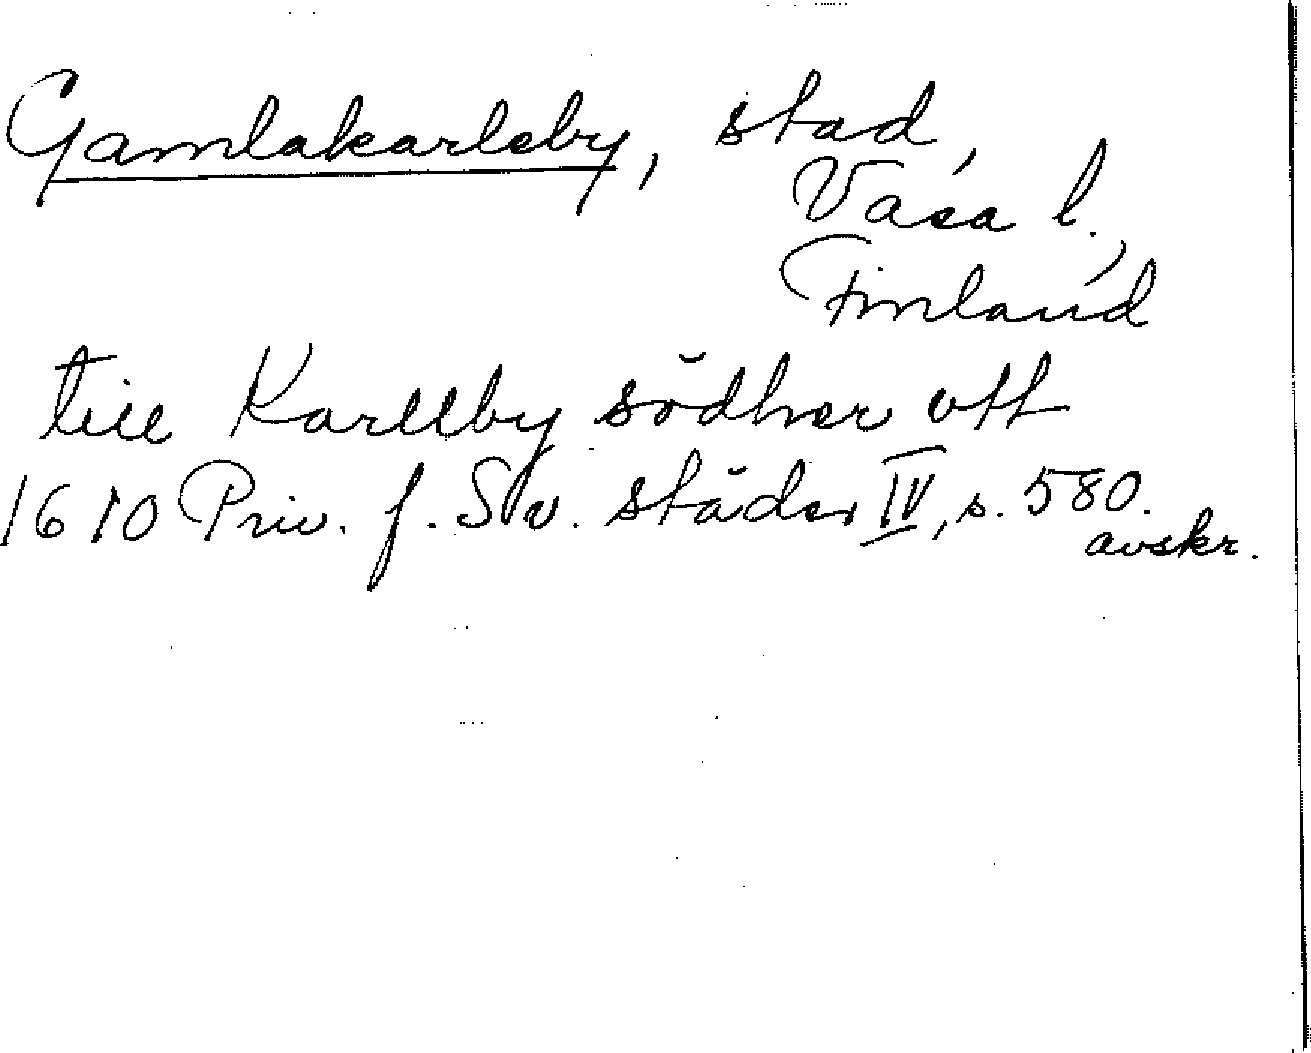 Gamlakarleby, stad,
Vasa l.,
Finland
till Karlby södher utt
1610 Priv. f. Sv. städer IV, s. 580.
avskr.